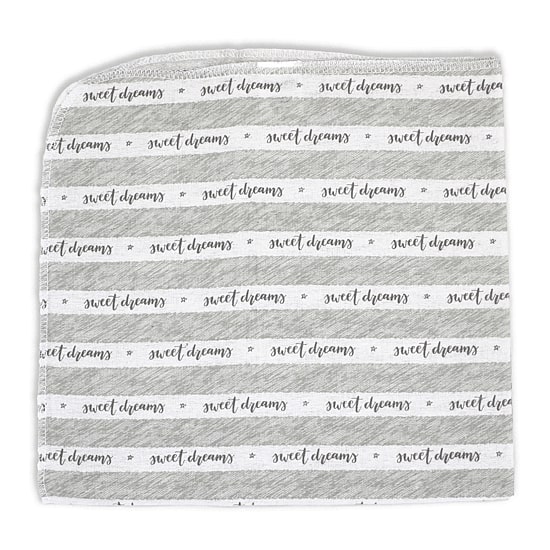 sweet dreams ☆ sweet dreams ☆ sweet dreams ☆ sweet drea
eet dreams ☆ sweet dreams ☆ sweet dreams ☆ sweet dreams ☆
☆ sweet dreams ☆ sweet dreams ☆ sweet dreams ☆ sweet drea
eet dreams ☆ sweet dreams ☆ sweet dreams ☆ sweet dreams ☆
☆ sweet dreams ☆ sweet dreams ☆ sweet dreams ☆ sweet dre
eet dreams ☆ sweet dreams ☆ sweet dreams ☆ sweet dreams ☆
☆ sweet dreams ☆ sweet dreams ☆ sweet dreams ☆ sweet dre
weet dreams ☆ sweet dreams ☆ sweet dreams ☆ sweet dreams ☆